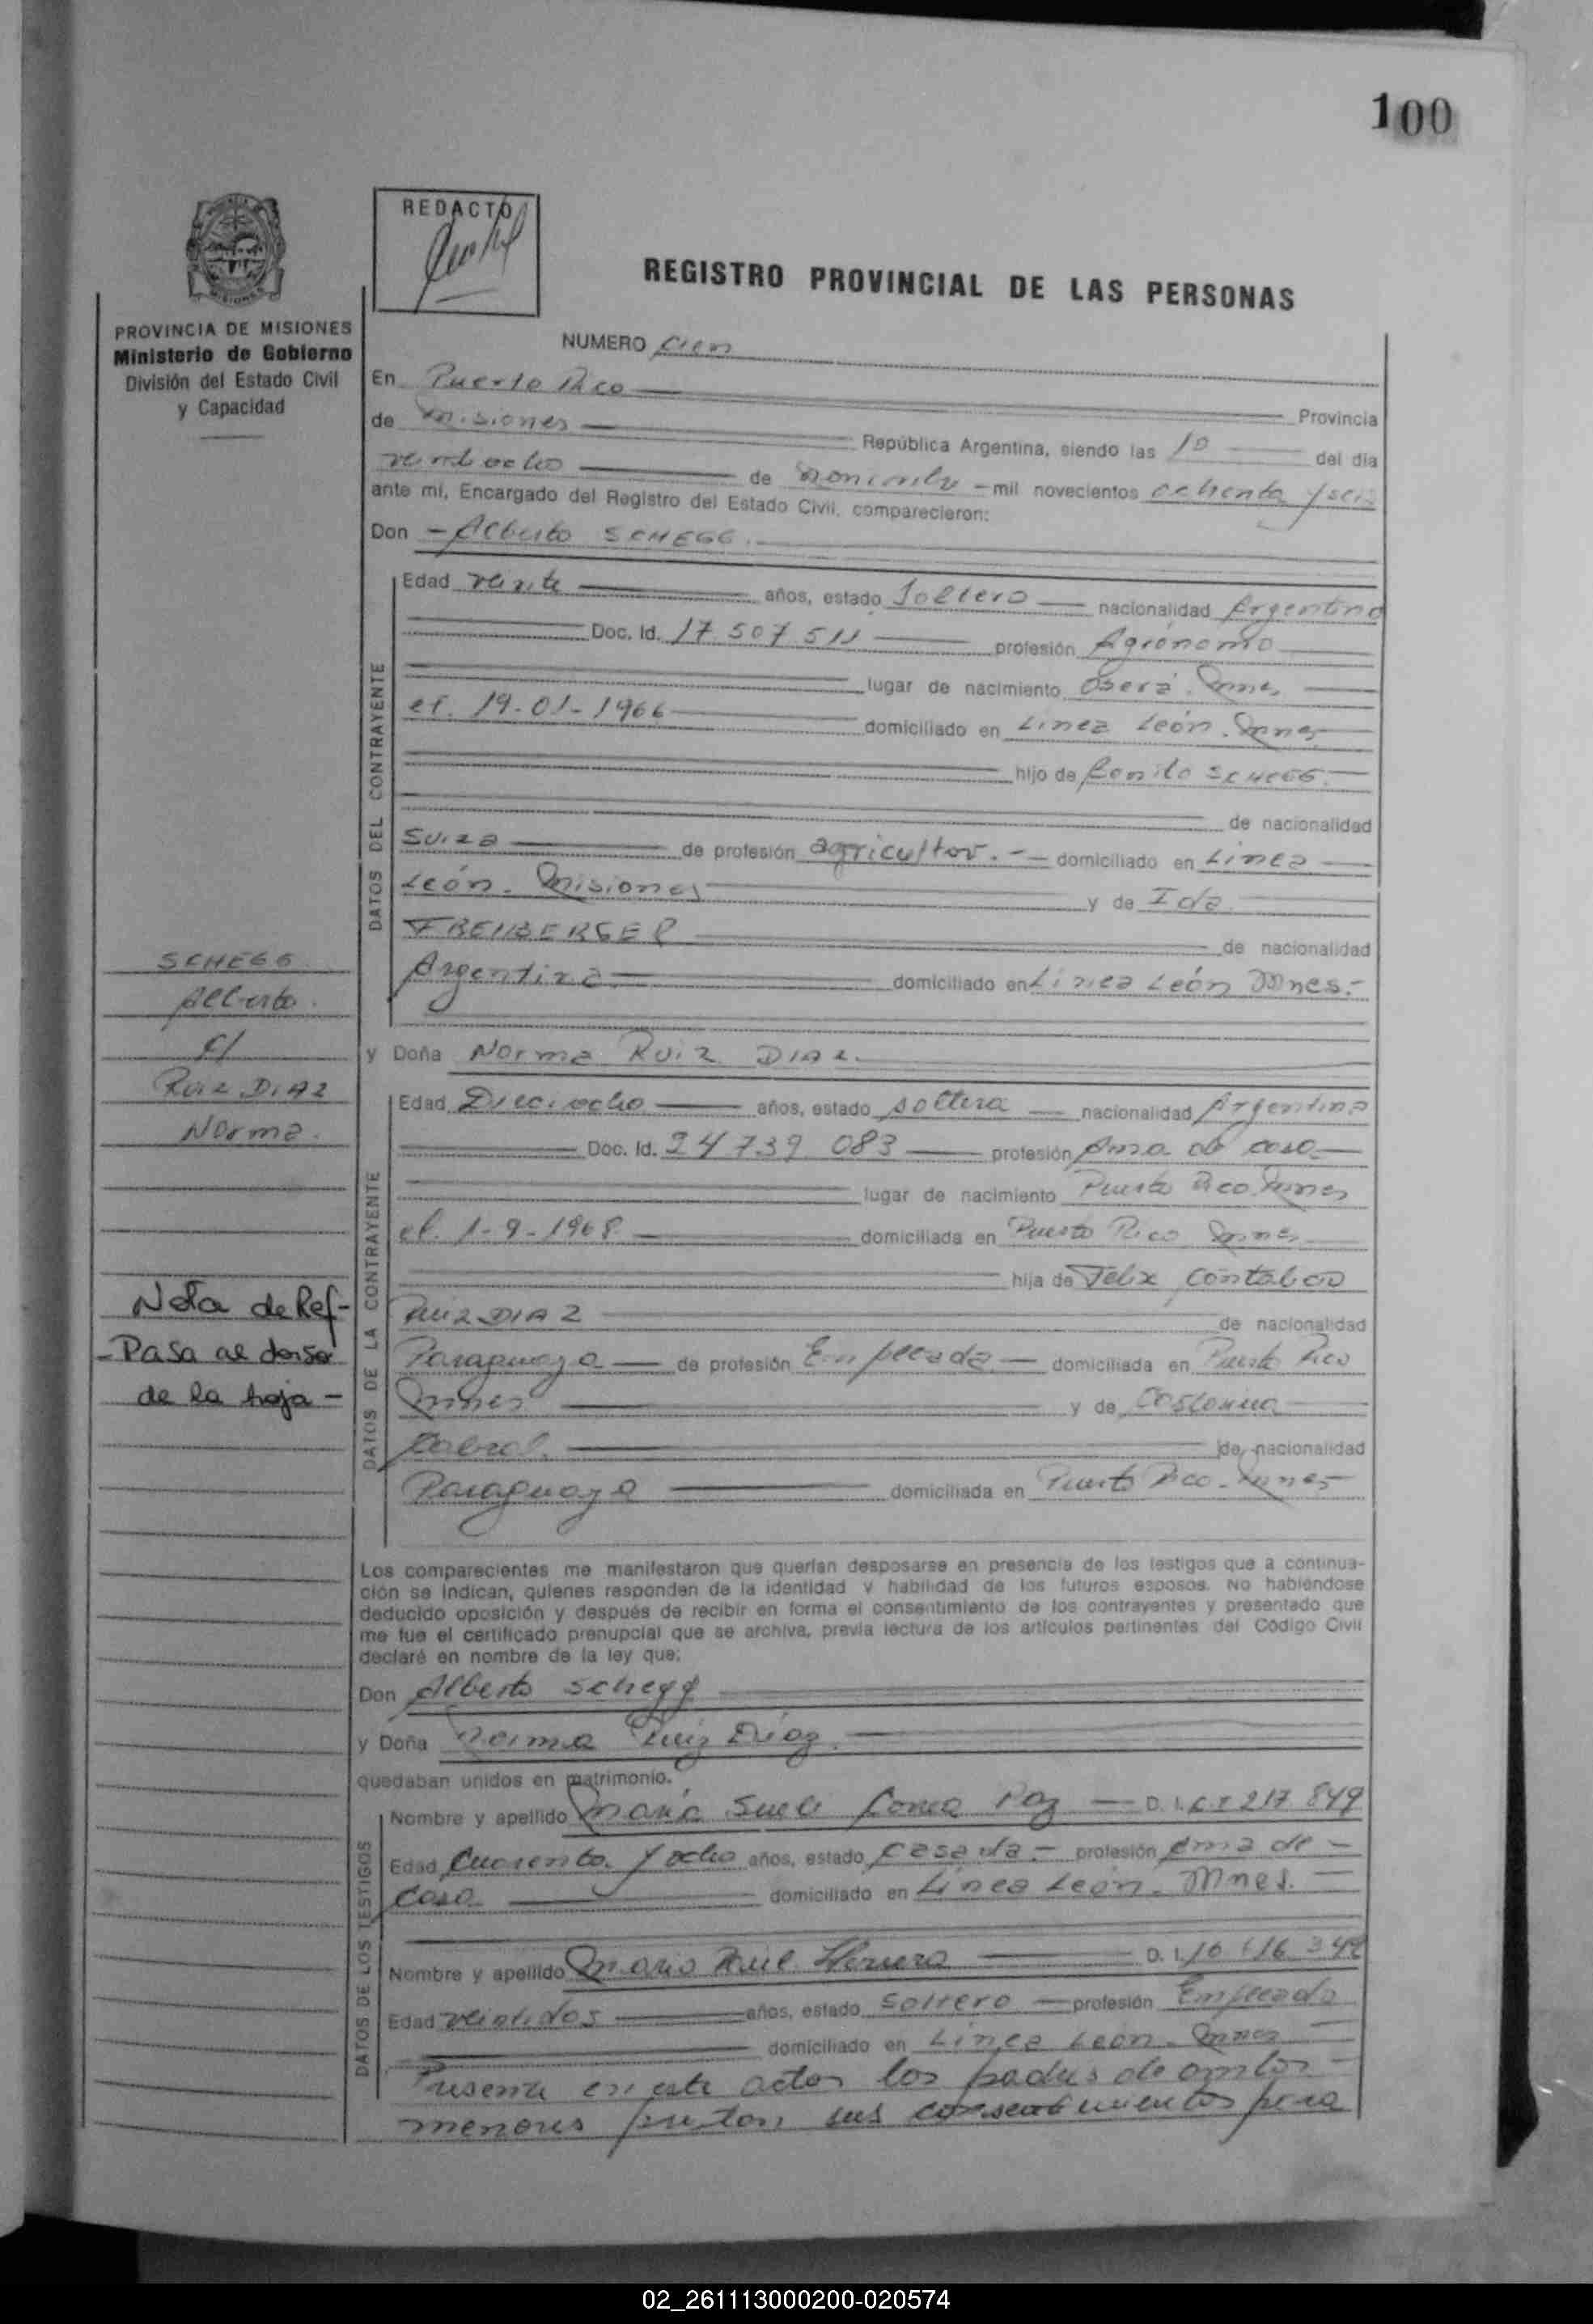 100
REDACTO
REGISTRO PROVINCIAL DE LAS PERSONAS
PROVINCIA DE MISIONES
Ministerio de Gobierno
División del Estado Civil
y Capacidad
NUMERO Cien
En Puerto Rico Provincia
de Misiones República Argentina, siendo las 10 del día
veintiocho de noviembre mil novecientos ochenta y seis
ante mí, Encargado del Registro del Estado Civil, comparecieron:
Don Alberto SCHEGG.
DATOS DEL CONTRAYENTE
Edad veinte años, estado Soltero nacionalidad Argentino
Doc. Id. 17.507.511 profesión Agrónomo
lugar de nacimiento Oberá. Mnes
el. 19-01-1966 domiciliado en Linea León. Mnes
hijo de Benito SCHEGG.
de nacionalidad
Suiza de profesión agricultor. domiciliado en Linea
León. Misiones y de Ida
de nacionalidad
Argentina domiciliado en Linea León Mnes.-
SCHEGG
Alberto.
c/
Ruiz DIAZ
Norma.
y Doña Norma Ruiz DIAZ.
DATOS DE LA CONTRAYENTE
Edad Dieciocho años, estado soltera nacionalidad Argentina
Doc. Id. 24 739 083 profesión Ama de casa
lugar de nacimiento Puerto Rico Mnes
el. 1-9-1968 domiciliada en Puerto Rico Mnes
hija de Felix
Ruiz DIAZ de nacionalidad
Paraguaya de profesión Empleada domiciliada en Puerto Rico
Mnes y de
Cabral. de nacionalidad
Paraguaya domiciliada en Puerto Rico - Mnes
Nota de Ref-
-Pasa al dorso
de la hoja-
Los comparecientes me manifestaron que querían desposarse en presencia de los testigos que a continua-
ción se indican, quienes responden de la identidad y habilidad de los futuros esposos. No habiéndose
deducido oposición y después de recibir en forma el consentimiento de los contrayentes y presentado que
me fue el certificado prenupcial que se archiva, previa lectura de los artículos pertinentes del Código Civil
declaré en nombre de la ley que:
Don Alberto Schegg
y Doña Norma Ruiz Díaz.
quedaban unidos en matrimonio.
DATOS DE LOS TESTIGOS
Nombre y apellido María Paz D. I. 217 849
Edad Cuarenta y ocho años, estado Casada.- profesión ama de -
Casa domiciliado en Linea León. Mnes.
Nombre y apellido Mario Herrera D. I. 16 616 342
Edad veintidos años, estado Soltero profesión Empleado
domiciliado en Linea León. Mnes
Presente en este acto los padres de ambos
menores prestan sus consentimientos para
02_261113000200-020574